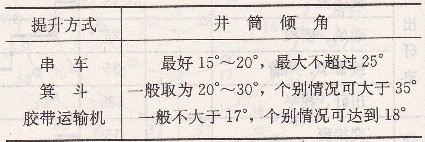 提升方式 井筒倾角
串车 最好15°~20°，最大不超过25°
箕斗 一般取为20°~30°，个别情况可大于35°
胶带运输机 一般不大于17°，个别情况可达到18°